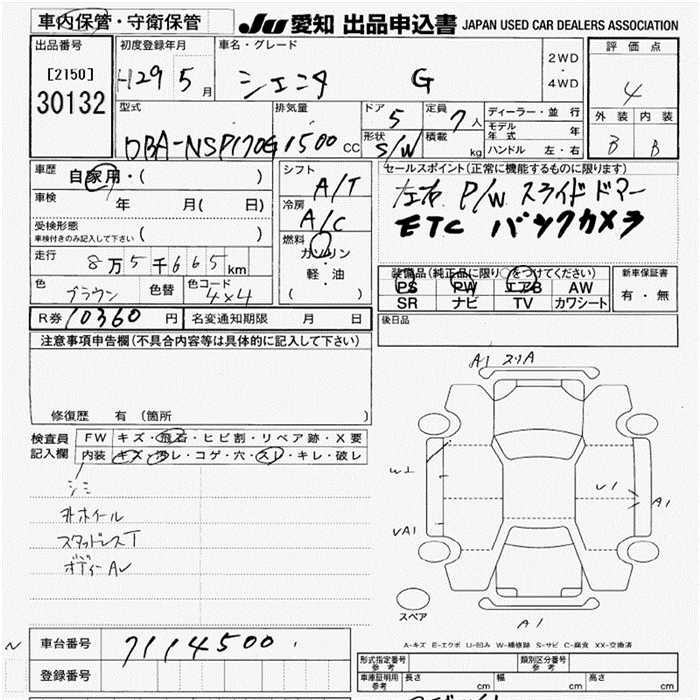 車内保管・守衛保管
JU 愛知 出品申込書 JAPAN USED CAR DEALERS ASSOCIATION
出品番号
[2150]
30132
初度登録年月
H29 5 月
車名・グレード
シエンタ G
2WD
・
4WD
評価点
4
外装 内装
B B
型式
DBA-NSP170G
排気量
1500 CC
ドア
5
定員
7 人
形状
S/W
積載
kg
ディーラー・並行
モデル年式 年
ハンドル 左・右
車歴
自家用・( )
車検
年 月( 日)
受検形態
車検付きのみ記入して下さい ( )
走行
8万5千665km
色
ブラウン
色替
色コード
4X4
シフト
A/T
冷房
A/C
燃料
ガソリン
・
軽・油
( )
セールスポイント(正常に機能するものに限ります)
左右 P/W スライドドアー
ETC バックカメラ
装備品(純正品に限り○をつけてください)
PS PW エアB AW
SR ナビ TV カワシート
新車保証書
有・無
R券 10360 円
名変通知期限 月 日
後日品
注意事項申告欄(不具合内容等は具体的に記入して下さい)
修復歴 有(箇所 )
検査員
記入欄
FW キズ・飛石・ヒビ割・リペア跡・X要
内装 キズ・汚レ・コゲ・穴・スレ・キレ・破レ
シミ
外ホイール
スタッドレスT
ボディーAV
A1 スリA
W1
VA1
V1
A1
スペア
A1
A-キズ E-エクボ U-凹み W-補修跡 S-サビ C-腐食 XX-交換済
N
車台番号 7114500
登録番号
形式指定番号
参考
類別区分番号
参考
車庫証明用
参考
長さ cm
幅 cm
高さ cm